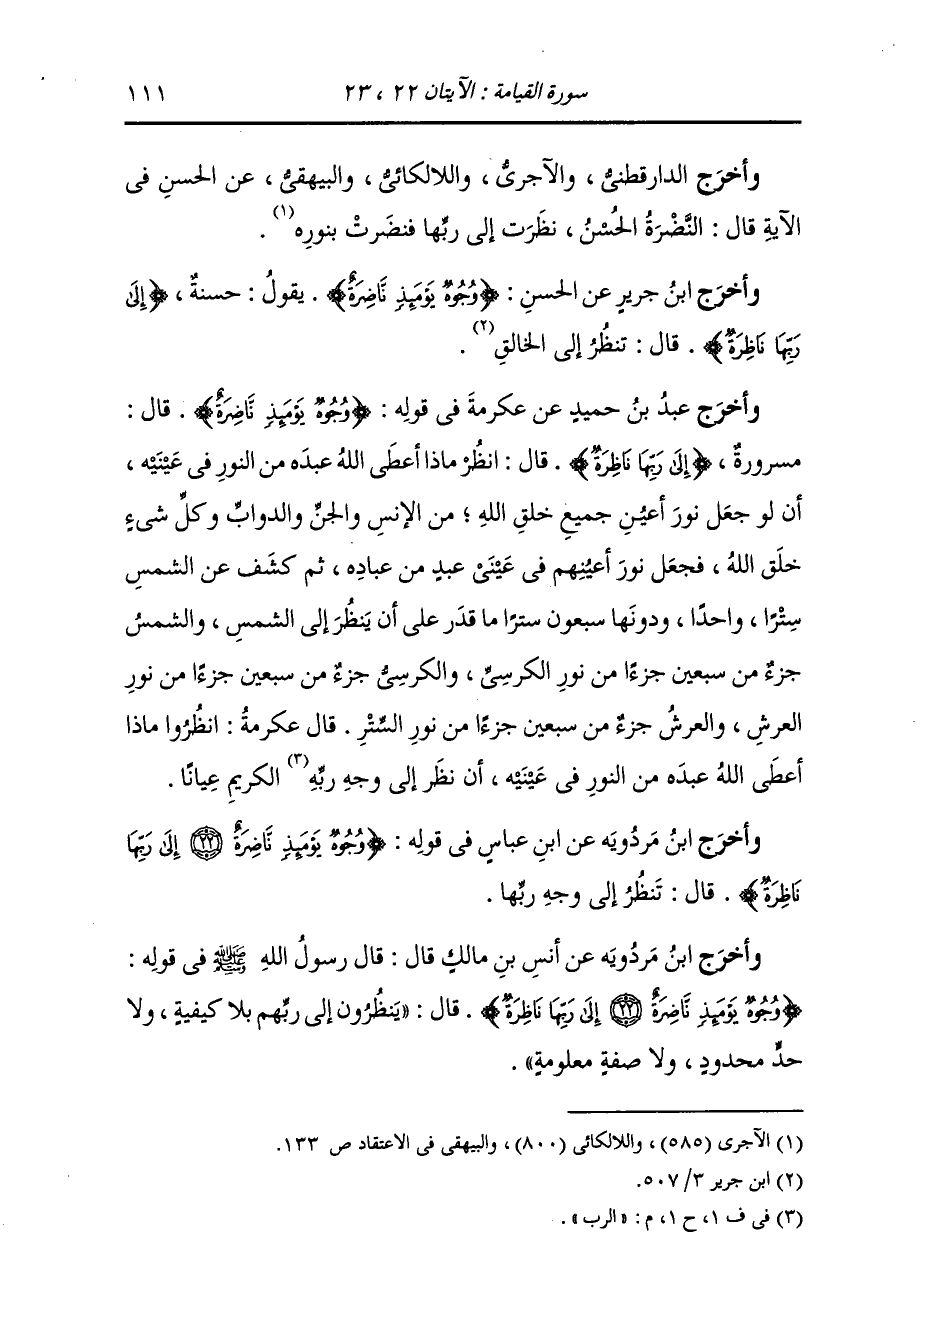 سورة القيامة : الآيتان ٢٢ ، ٢٣ ١١١
وأخرَج الدارقطنىُّ ، والآجرىُّ ، واللالكائىُّ ، والبيهقىُّ ، عن الحسنِ فى
الآيةِ قال : النَّضْرَةُ الحُسْنُ ، نظَرَت إلى ربِّها فنضَرتْ بنورِه(١) .
وأخرَج ابنُ جريرٍ عن الحسنِ : ﴿وُجُوهٌ يَوْمَئِذٍ نَّاضِرَةٌ﴾ . يقولُ : حسنةٌ ، ﴿إِلَىٰ
رَبِّهَا نَاظِرَةٌ﴾ . قال : تنظُرُ إلى الخالقِ(٢) .
وأخرَج عبدُ بنُ حميدٍ عن عكرمةَ فى قولِه : ﴿وُجُوهٌ يَوْمَئِذٍ نَّاضِرَةٌ﴾ . قال :
مسرورةٌ ، ﴿إِلَىٰ رَبِّهَا نَاظِرَةٌ﴾ . قال : انظُرْ ماذا أعطَى اللهُ عبدَه من النورِ فى عَيْنَيْه ،
أن لو جعَل نورَ أعيُنِ جميعِ خلقِ اللهِ ؛ من الإنسِ والجنِّ والدوابِّ وكلِّ شىءٍ
خلَق اللهُ ، فجعَل نورَ أعيُنِهم فى عَيْنَىْ عبدٍ من عبادِه ، ثم كشَف عن الشمسِ
سِتْرًا ، واحدًا ، ودونَها سبعون سترًا ما قدَر على أن يَنظُرَ إلى الشمسِ ، والشمسُ
جزءٌ من سبعين جزءًا من نورِ الكرسىِّ ، والكرسىُّ جزءٌ من سبعين جزءًا من نورِ
العرشِ ، والعرشُ جزءٌ من سبعين جزءًا من نورِ السِّتْرِ . قال عكرمةُ : انظُرُوا ماذا
أعطَى اللهُ عبدَه من النورِ فى عَيْنَيْه ، أن نظَر إلى وجهِ ربِّهِ(٣) الكريمِ عِيانًا .
وأخرَج ابنُ مَردُويَه عن ابنِ عباسٍ فى قولِه : ﴿وُجُوهٌ يَوْمَئِذٍ نَّاضِرَةٌ ٢٢ إِلَىٰ رَبِّهَا
نَاظِرَةٌ﴾ . قال : تَنظُرُ إلى وجهِ ربِّها .
وأخرَج ابنُ مَردُويَه عن أنسِ بنِ مالكٍ قال : قال رسولُ اللهِ ﷺ فى قولِه :
﴿وُجُوهٌ يَوْمَئِذٍ نَّاضِرَةٌ ٢٢ إِلَىٰ رَبِّهَا نَاظِرَةٌ﴾ . قال : «يَنظُرُون إلى ربِّهم بلا كيفيةٍ ، ولا
حدٍّ محدودٍ ، ولا صفةٍ معلومةٍ» .
(١) الآجرى (٥٨٥) ، واللالكائى (٨٠٠) ، والبيهقى فى الاعتقاد ص ١٣٣.
(٢) ابن جرير ٣/ ٥٠٧.
(٣) فى ف ١، ح ١، م : «الرب» .